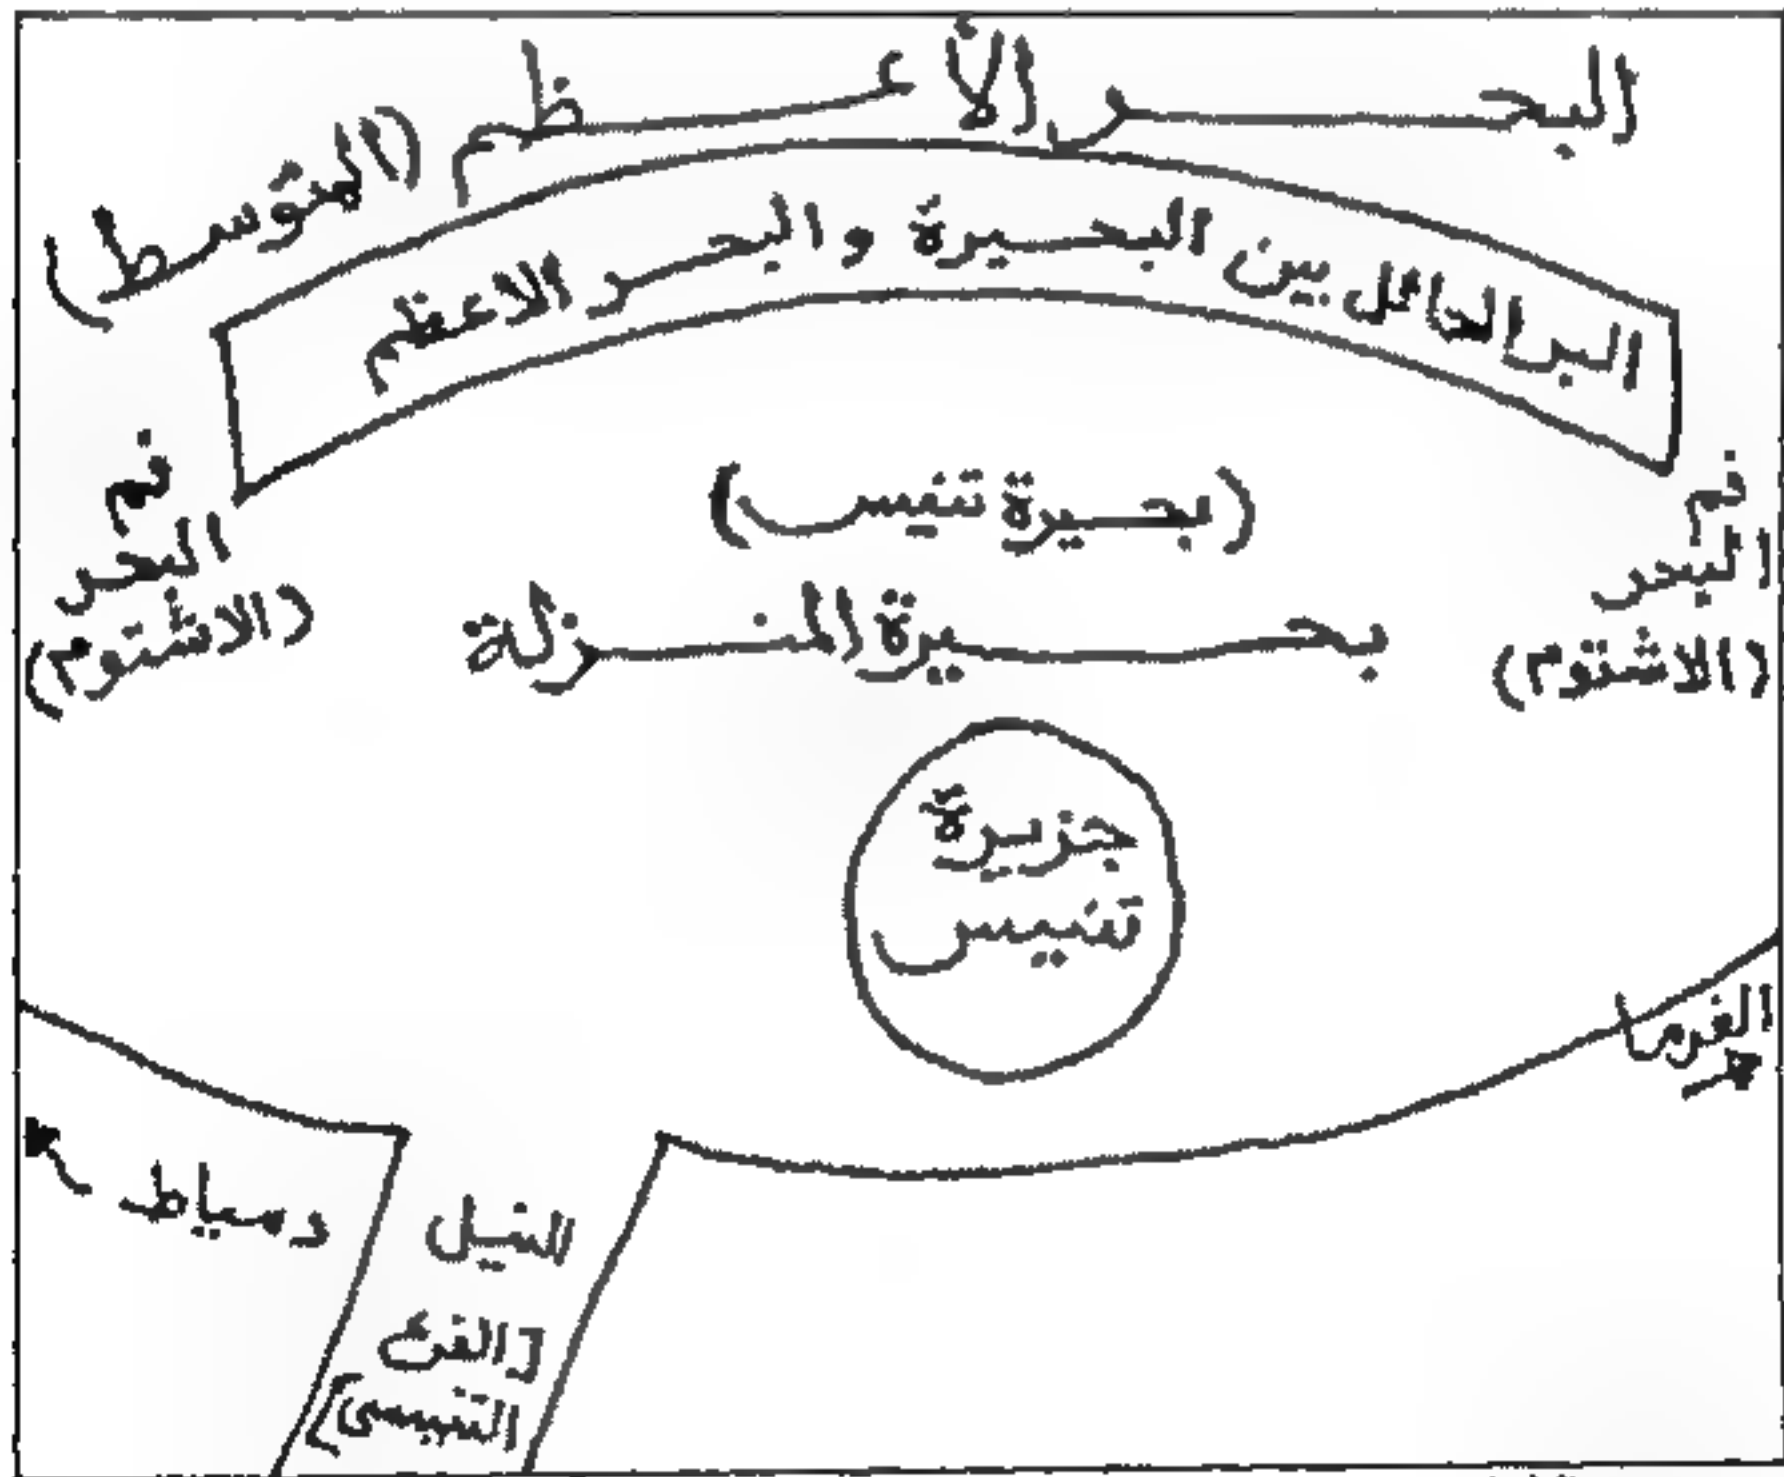 البحر الأعظم (المتوسط)
البر الحائل بين البحيرة والبحر الاعظم
فم
البحر
(الاشتوم)
(بحيرة تنيس)
بحيرة المنزلة
فم
البحر
(الاشتوم)
جزيرة
تنيس
الفرما
دمياط
النيل
[الفرع
التنيسى]